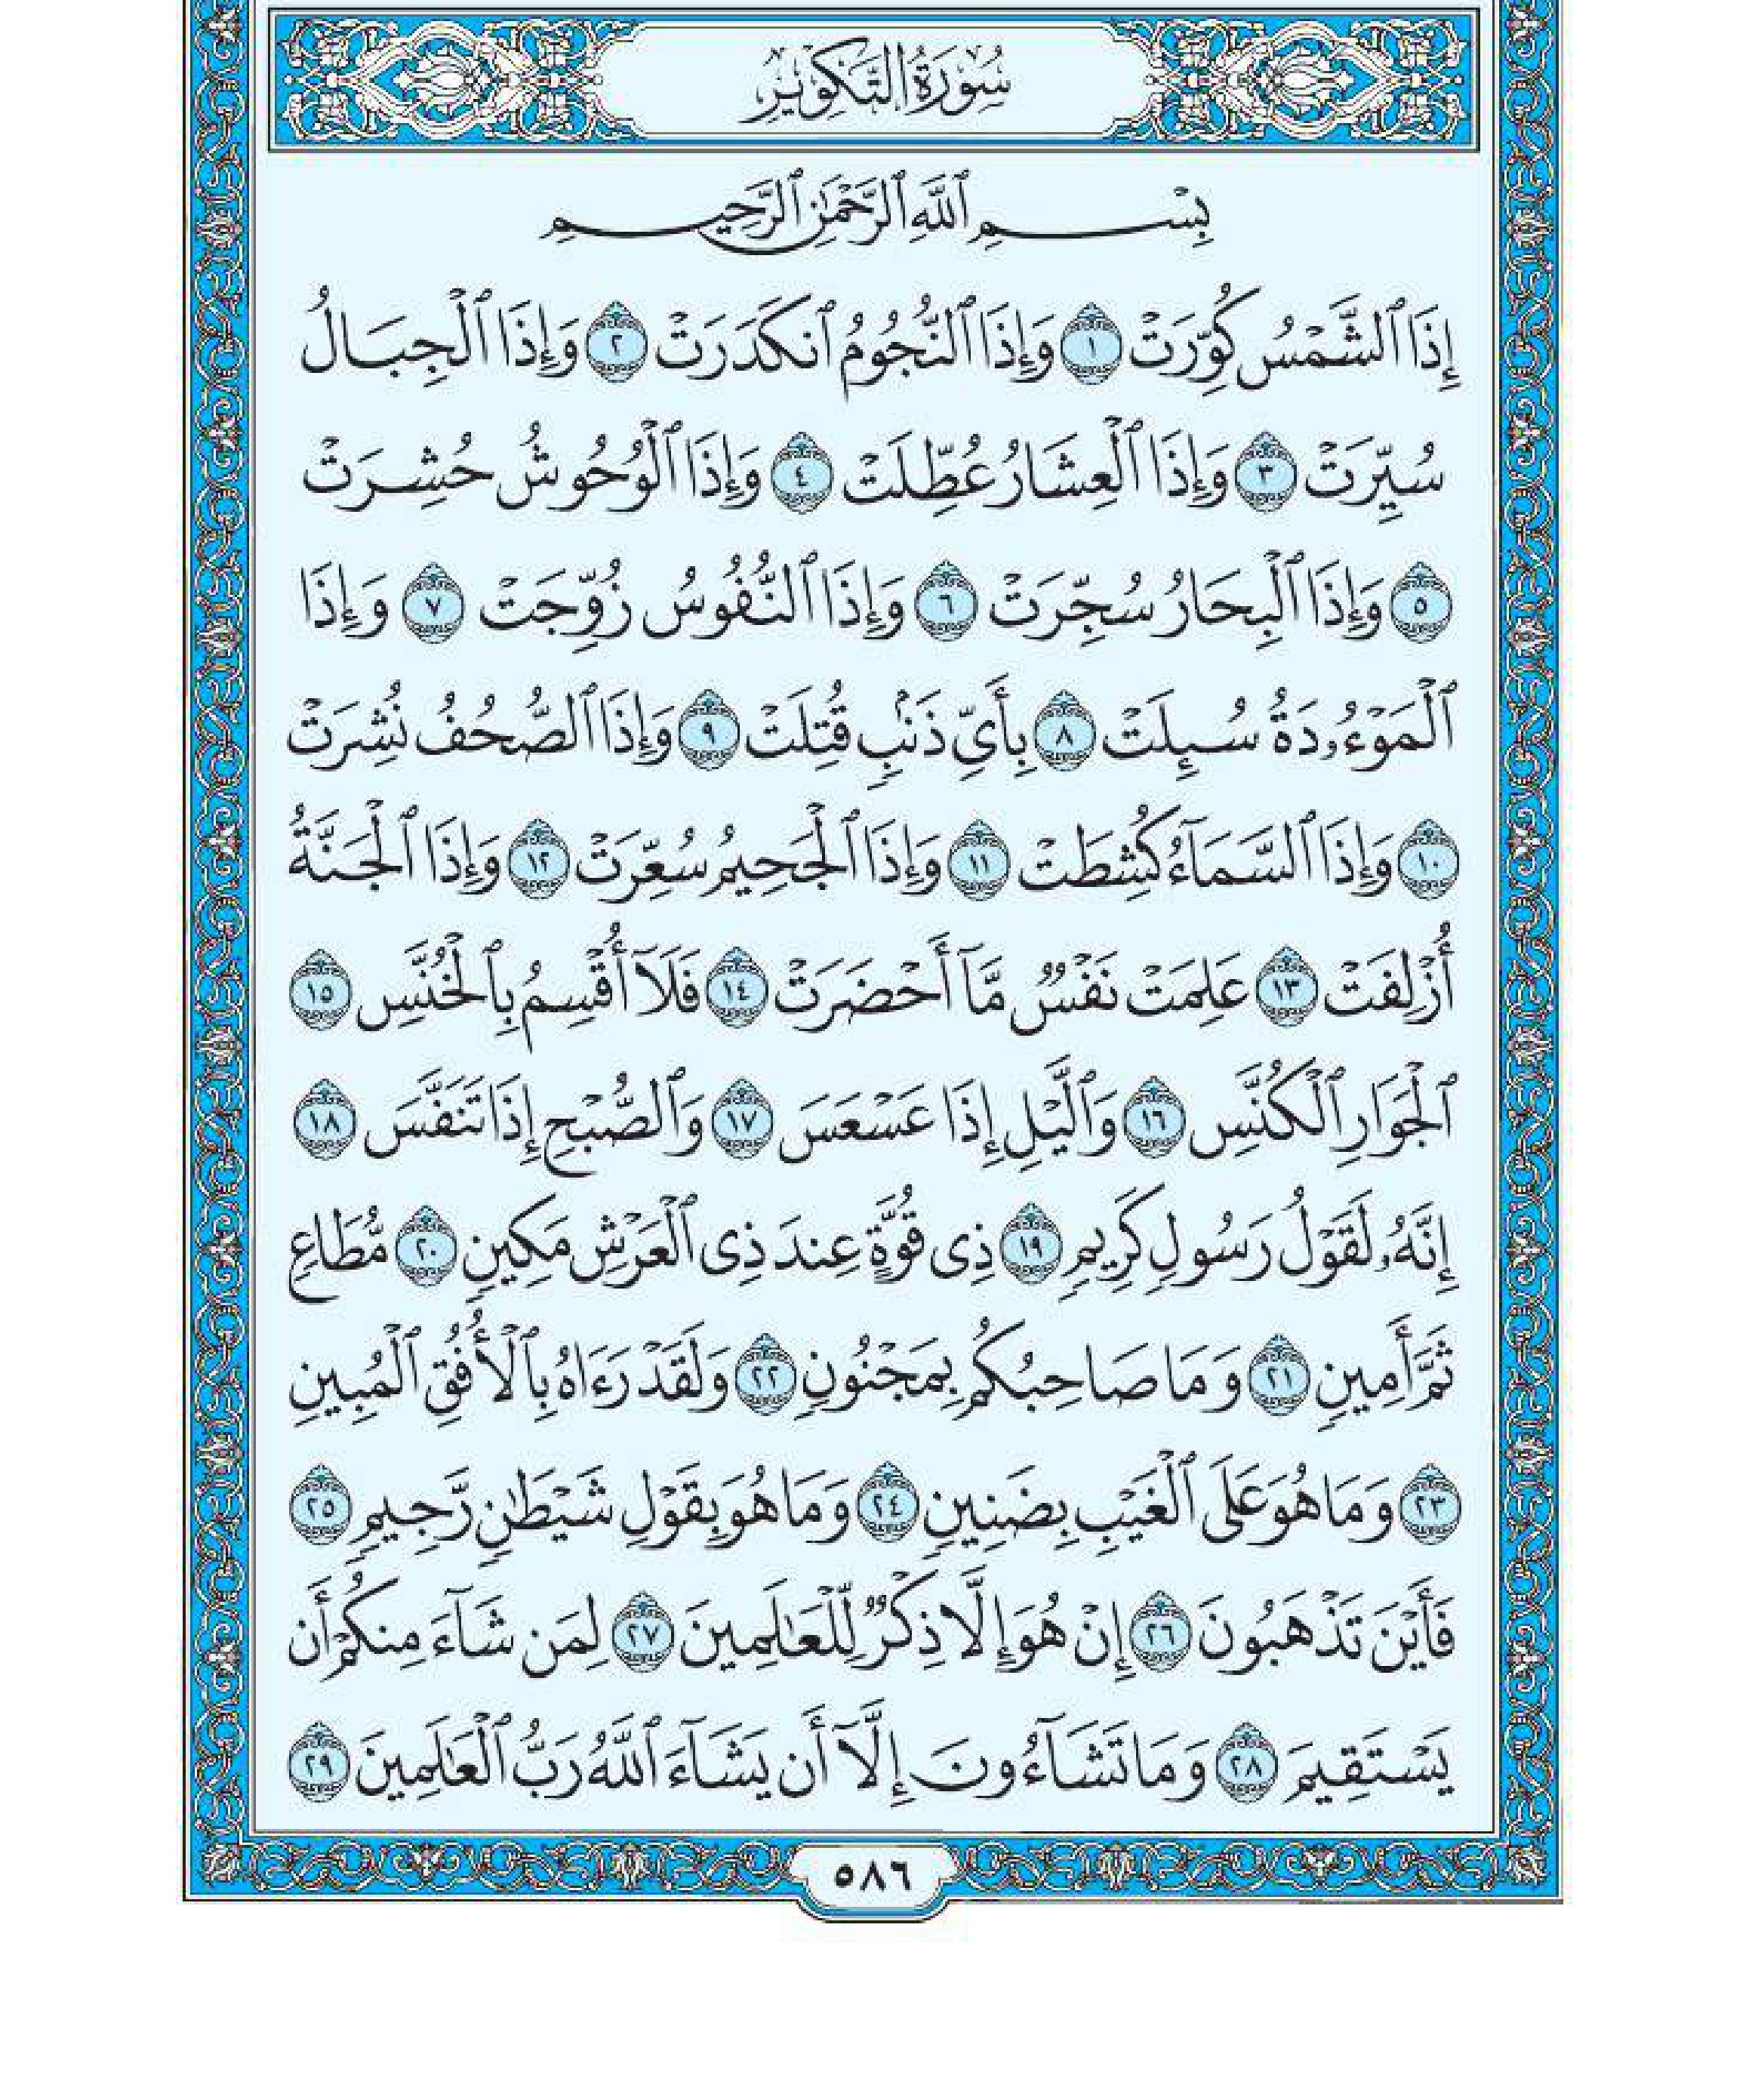 سُورَةُ التَّكْوِيرِ
بِسْمِ ٱللَّهِ ٱلرَّحْمَٰنِ ٱلرَّحِيمِ
إِذَا ٱلشَّمْسُ كُوِّرَتْ ١ وَإِذَا ٱلنُّجُومُ ٱنكَدَرَتْ ٢ وَإِذَا ٱلْجِبَالُ
سُيِّرَتْ ٣ وَإِذَا ٱلْعِشَارُ عُطِّلَتْ ٤ وَإِذَا ٱلْوُحُوشُ حُشِرَتْ
٥ وَإِذَا ٱلْبِحَارُ سُجِّرَتْ ٦ وَإِذَا ٱلنُّفُوسُ زُوِّجَتْ ٧ وَإِذَا
ٱلْمَوْءُۥدَةُ سُئِلَتْ ٨ بِأَىِّ ذَنۢبٍ قُتِلَتْ ٩ وَإِذَا ٱلصُّحُفُ نُشِرَتْ
١٠ وَإِذَا ٱلسَّمَآءُ كُشِطَتْ ١١ وَإِذَا ٱلْجَحِيمُ سُعِّرَتْ ١٢ وَإِذَا ٱلْجَنَّةُ
أُزْلِفَتْ ١٣ عَلِمَتْ نَفْسٌ مَّآ أَحْضَرَتْ ١٤ فَلَآ أُقْسِمُ بِٱلْخُنَّسِ ١٥
ٱلْجَوَارِ ٱلْكُنَّسِ ١٦ وَٱلَّيْلِ إِذَا عَسْعَسَ ١٧ وَٱلصُّبْحِ إِذَا تَنَفَّسَ ١٨
إِنَّهُۥ لَقَوْلُ رَسُولٍ كَرِيمٍ ١٩ ذِى قُوَّةٍ عِندَ ذِى ٱلْعَرْشِ مَكِينٍ ٢٠ مُّطَاعٍ
ثَمَّ أَمِينٍ ٢١ وَمَا صَاحِبُكُم بِمَجْنُونٍ ٢٢ وَلَقَدْ رَءَاهُ بِٱلْأُفُقِ ٱلْمُبِينِ
٢٣ وَمَا هُوَ عَلَى ٱلْغَيْبِ بِضَنِينٍ ٢٤ وَمَا هُوَ بِقَوْلِ شَيْطَٰنٍ رَّجِيمٍ ٢٥
فَأَيْنَ تَذْهَبُونَ ٢٦ إِنْ هُوَ إِلَّا ذِكْرٌ لِّلْعَٰلَمِينَ ٢٧ لِمَن شَآءَ مِنكُمْ أَن
يَسْتَقِيمَ ٢٨ وَمَا تَشَآءُونَ إِلَّآ أَن يَشَآءَ ٱللَّهُ رَبُّ ٱلْعَٰلَمِينَ ٢٩
٥٨٦